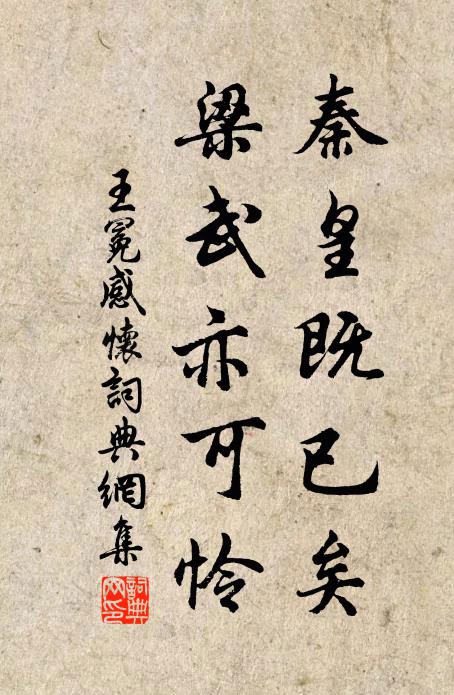 秦皇既已矣
梁武亦可怜
王冕感懷詞典網集
詞典
网印